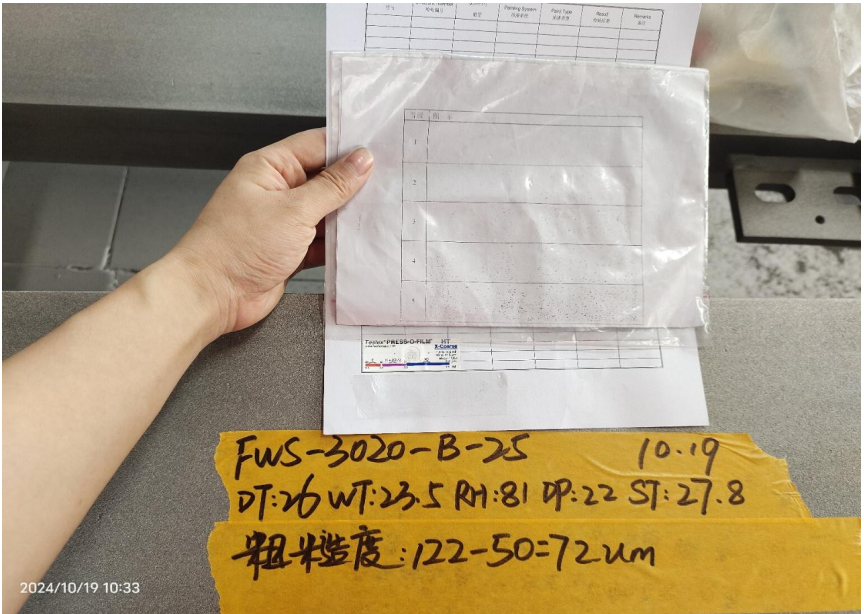 Painting System
Paint Type
Result
Remarks
备注
等级 图 示
1
2
3
4
5
Testex PRESS-O-FILM HT
X-Coarse
FWS-3020-B-25 10.19
DT:26 WT:23.5 RH:81 DP:22 ST:27.8
粗糙度:122-50=72um
2024/10/19 10:33